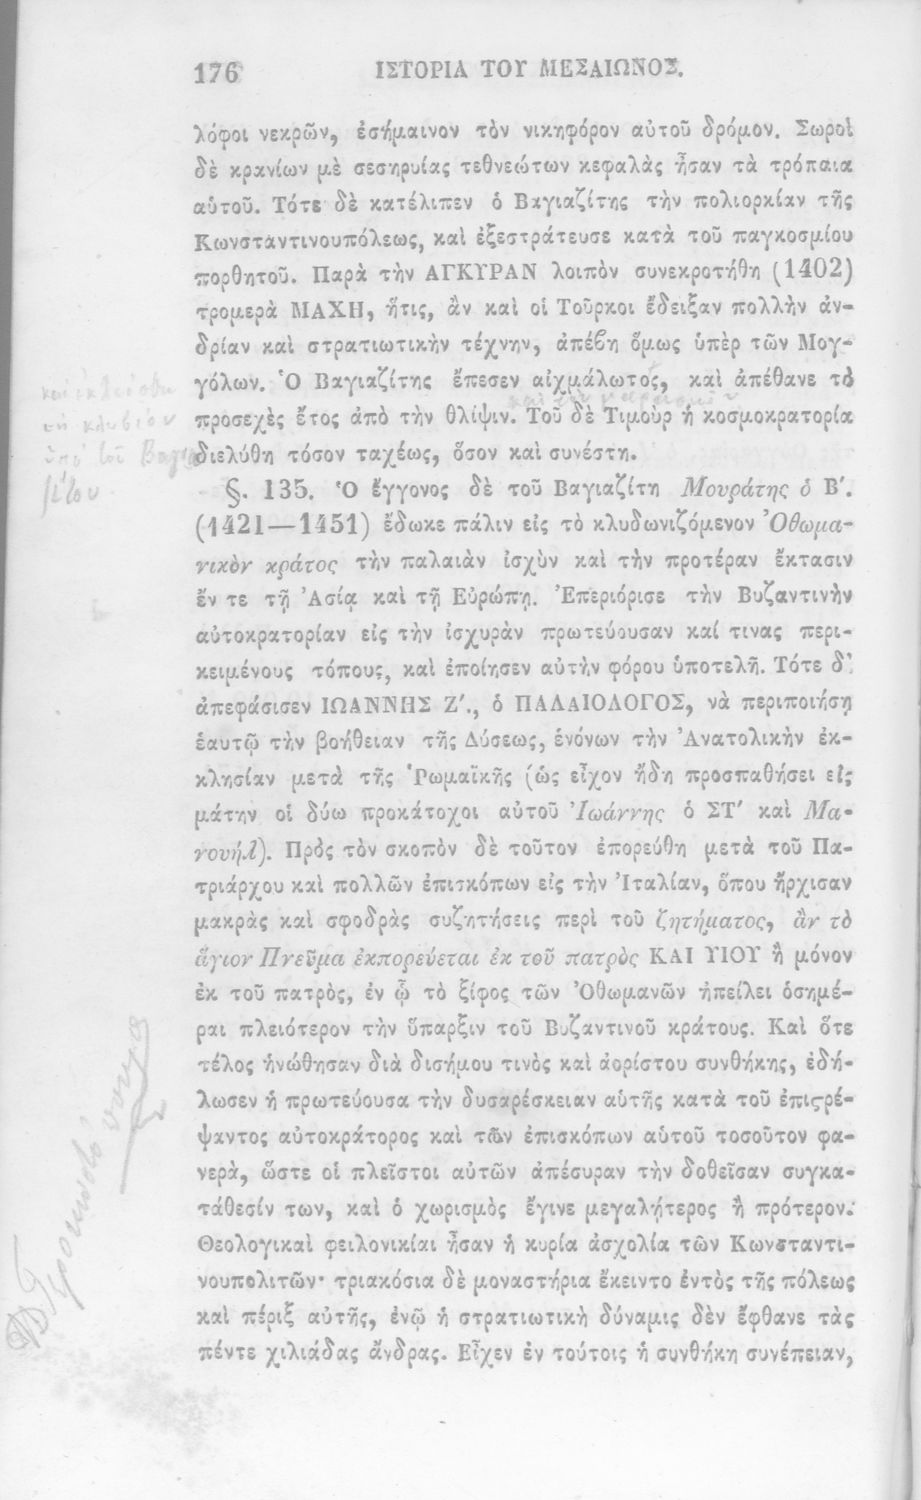 176 ΙΣΤΟΡΙΑ ΤΟΥ ΜΕΣΑΙΩΝΟΣ.
λόφοι νεκρῶν, ἐσήμαινον τὸν νικηφόρον αὐτοῦ δρόμον. Σωροὶ
δὲ κρανίων μὲ σεσηρυίας τεθνεώτων κεφαλὰς ἦσαν τὰ τρόπαια
αὐτοῦ. Τότε δὲ κατέλιπεν ὁ Βαγιαζίτης τὴν πολιορκίαν τῆς
Κωνσταντινουπόλεως, καὶ ἐξεστράτευσε κατὰ τοῦ παγκοσμίου
πορθητοῦ. Παρὰ τὴν ΑΓΚΥΡΑΝ λοιπὸν συνεκροτήθη (1402)
τρομερὰ ΜΑΧΗ, ἥτις, ἂν καὶ οἱ Τοῦρκοι ἔδειξαν πολλὴν ἀν-
δρίαν καὶ στρατιωτικὴν τέχνην, ἀπέβη ὅμως ὑπὲρ τῶν Μογ-
γόλων. Ὁ Βαγιαζίτης ἔπεσεν αἰχμάλωτος, καὶ ἀπέθανε τὸ
προσεχὲς ἔτος ἀπὸ τὴν θλίψιν. Τοῦ δὲ Τιμοὺρ ἡ κοσμοκρατορία
διελύθη τόσον ταχέως, ὅσον καὶ συνέστη.
§. 135. Ὁ ἔγγονος δὲ τοῦ Βαγιαζίτη Μουράτης ὁ Β΄.
(1421—1451) ἔδωκε πάλιν εἰς τὸ κλυδωνιζόμενον Ὀθωμα-
νικὸν κράτος τὴν παλαιὰν ἰσχὺν καὶ τὴν προτέραν ἔκτασιν
ἔν τε τῇ Ἀσίᾳ καὶ τῇ Εὐρώπῃ. Ἐπεριόρισε τὴν Βυζαντινὴν
αὐτοκρατορίαν εἰς τὴν ἰσχυρὰν πρωτεύουσαν καί τινας περι-
κειμένους τόπους, καὶ ἐποίησεν αὐτὴν φόρου ὑποτελῆ. Τότε δ᾽
ἀπεφάσισεν ΙΩΑΝΝΗΣ Ζ΄., ὁ ΠΑΛΑΙΟΛΟΓΟΣ, νὰ περιποιήσῃ
ἑαυτῷ τὴν βοήθειαν τῆς Δύσεως, ἑνόνων τὴν Ἀνατολικὴν ἐκ-
κλησίαν μετὰ τῆς Ῥωμαϊκῆς (ὡς εἶχον ἤδη προσπαθήσει εἰς
μάτην οἱ δύω προκάτοχοι αὐτοῦ Ἰωάννης ὁ ΣΤ΄ καὶ Μα-
νουήλ). Πρὸς τὸν σκοπὸν δὲ τοῦτον ἐπορεύθη μετὰ τοῦ Πα-
τριάρχου καὶ πολλῶν ἐπισκόπων εἰς τὴν Ἰταλίαν, ὅπου ἤρχισαν
μακρὰς καὶ σφοδρὰς συζητήσεις περὶ τοῦ ζητήματος, ἂν τὸ
ἅγιον Πνεῦμα ἐκπορεύεται ἐκ τοῦ πατρὸς ΚΑΙ ΥΙΟΥ ἢ μόνον
ἐκ τοῦ πατρὸς, ἐν ᾧ τὸ ξίφος τῶν Ὀθωμανῶν ἠπείλει ὁσημέ-
ραι πλειότερον τὴν ὕπαρξιν τοῦ Βυζαντινοῦ κράτους. Καὶ ὅτε
τέλος ἡνώθησαν διὰ δισήμου τινὸς καὶ ἀορίστου συνθήκης, ἐδή-
λωσεν ἡ πρωτεύουσα τὴν δυσαρέσκειαν αὑτῆς κατὰ τοῦ ἐπιςρέ-
ψαντος αὐτοκράτορος καὶ τῶν ἐπισκόπων αὑτοῦ τοσοῦτον φα-
νερὰ, ὥστε οἱ πλεῖστοι αὐτῶν ἀπέσυραν τὴν δοθεῖσαν συγκα-
τάθεσίν των, καὶ ὁ χωρισμὸς ἔγινε μεγαλήτερος ἢ πρότερον.
Θεολογικαὶ φειλονικίαι ἦσαν ἡ κυρία ἀσχολία τῶν Κωνσταντι-
νουπολιτῶν· τριακόσια δὲ μοναστήρια ἔκειντο ἐντὸς τῆς πόλεως
καὶ πέριξ αὐτῆς, ἐνῷ ἡ στρατιωτικὴ δύναμις δὲν ἔφθανε τὰς
πέντε χιλιάδας ἄνδρας. Εἶχεν ἐν τούτοις ἡ συνθήκη συνέπειαν,